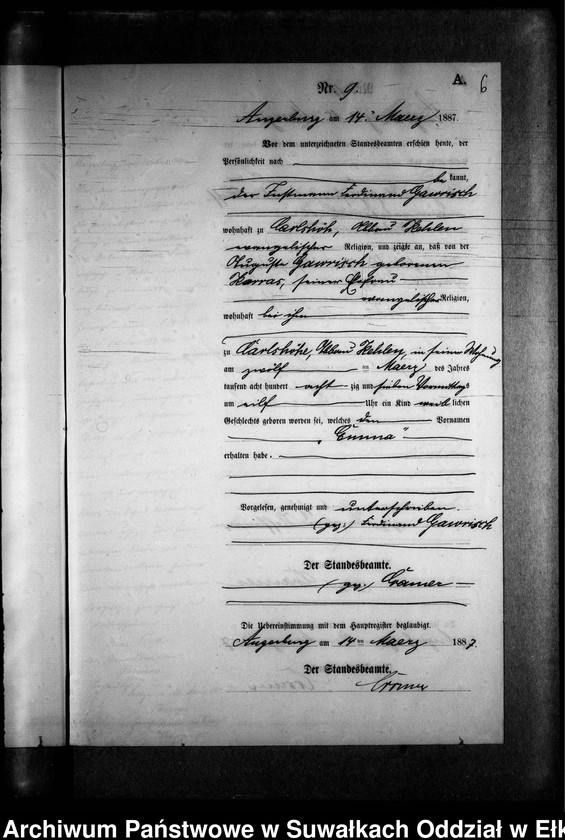 A. 6
Nr. 9.
Angerburg am 14ten Maerz 1887.
Vor dem unterzeichneten Standesbeamten erschien heute, der
Persönlichkeit nach
be kannt,
der Instmann Ferdinand Gawrisch
wohnhaft zu Carlshöh, Abbau Kehlen
evangelischer Religion, und zeigte an, daß von der
Auguste Gawrisch geborenen
Karras, seiner Ehefrau
evangelischer Religion,
wohnhaft bei ihm
zu Carlshöhe, Abbau Kehlen, in seiner Wohnung
am zwölften Maerz des Jahres
tausend acht hundert acht zig und sieben Vormittags
um eilf Uhr ein Kind weib lichen
Geschlechts geboren worden sei, welches den Vornamen
"Emma"
erhalten habe.
Vorgelesen, genehmigt und unterschrieben.
(gez:) Ferdinand Gawrisch
Der Standesbeamte.
(gez:) Cramer
Die Uebereinstimmung mit dem Hauptregister beglaubigt.
Angerburg am 14ten Maerz 1887.
Der Standesbeamte.
Cramer
Archiwum Państwowe w Suwałkach Oddział w Ełk